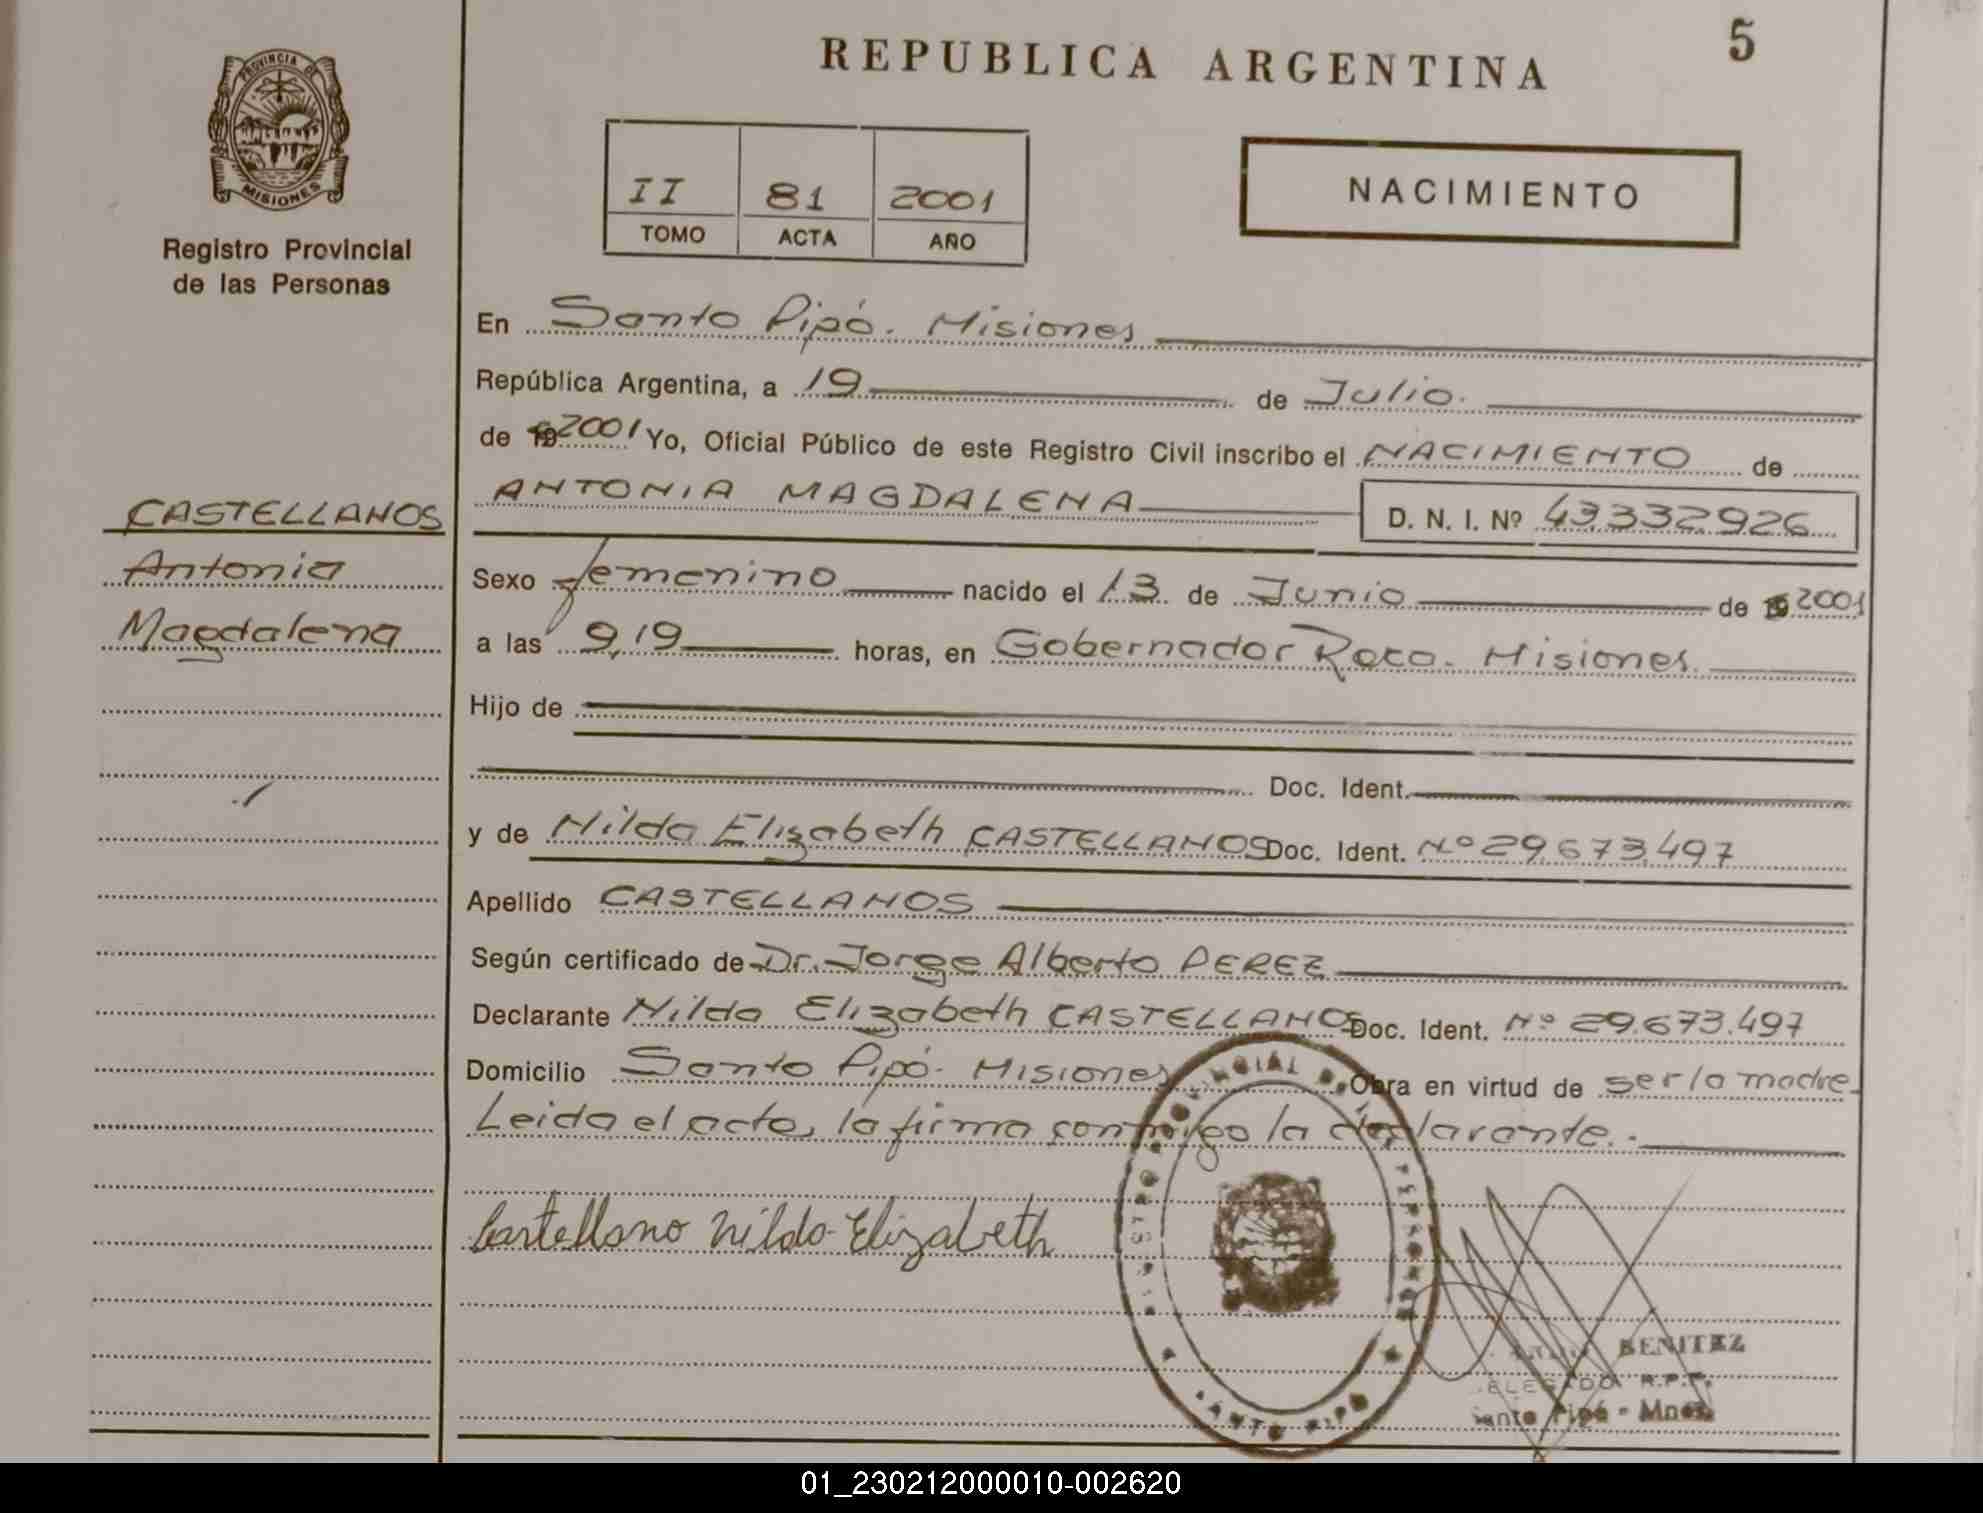 REPUBLICA ARGENTINA
5
PROVINCIA DE
MISIONES
Registro Provincial
de las Personas
II 81 2001
TOMO ACTA AÑO
NACIMIENTO
En Santo Pipó. Misiones
República Argentina, a 19 de Julio.
de 19 2001 Yo, Oficial Público de este Registro Civil inscribo el NACIMIENTO de
ANTONIA MAGDALENA D. N. I. Nº 43.332.926
CASTELLANOS
Antonia
Magdalena
Sexo femenino nacido el 13 de Junio de 19 2001
a las 9,19 horas, en Gobernador Roca. Misiones.
Hijo de
Doc. Ident.
y de Nilda Elizabeth CASTELLANOS Doc. Ident. Nº 29.673.497
Apellido CASTELLANOS
Según certificado de Dr. Jorge Alberto PEREZ
Declarante Nilda Elizabeth CASTELLANOS Doc. Ident. Nº 29.673.497
Domicilio Santo Pipó. Misiones Obra en virtud de ser la madre-
Leida el acta, la firma conmigo la declarante.-
Castellano Nilda Elizabeth
SANTO PIPO
BENITEZ
DELEGADO R.P.P.
Santo Pipó - Mnes.
01_230212000010-002620